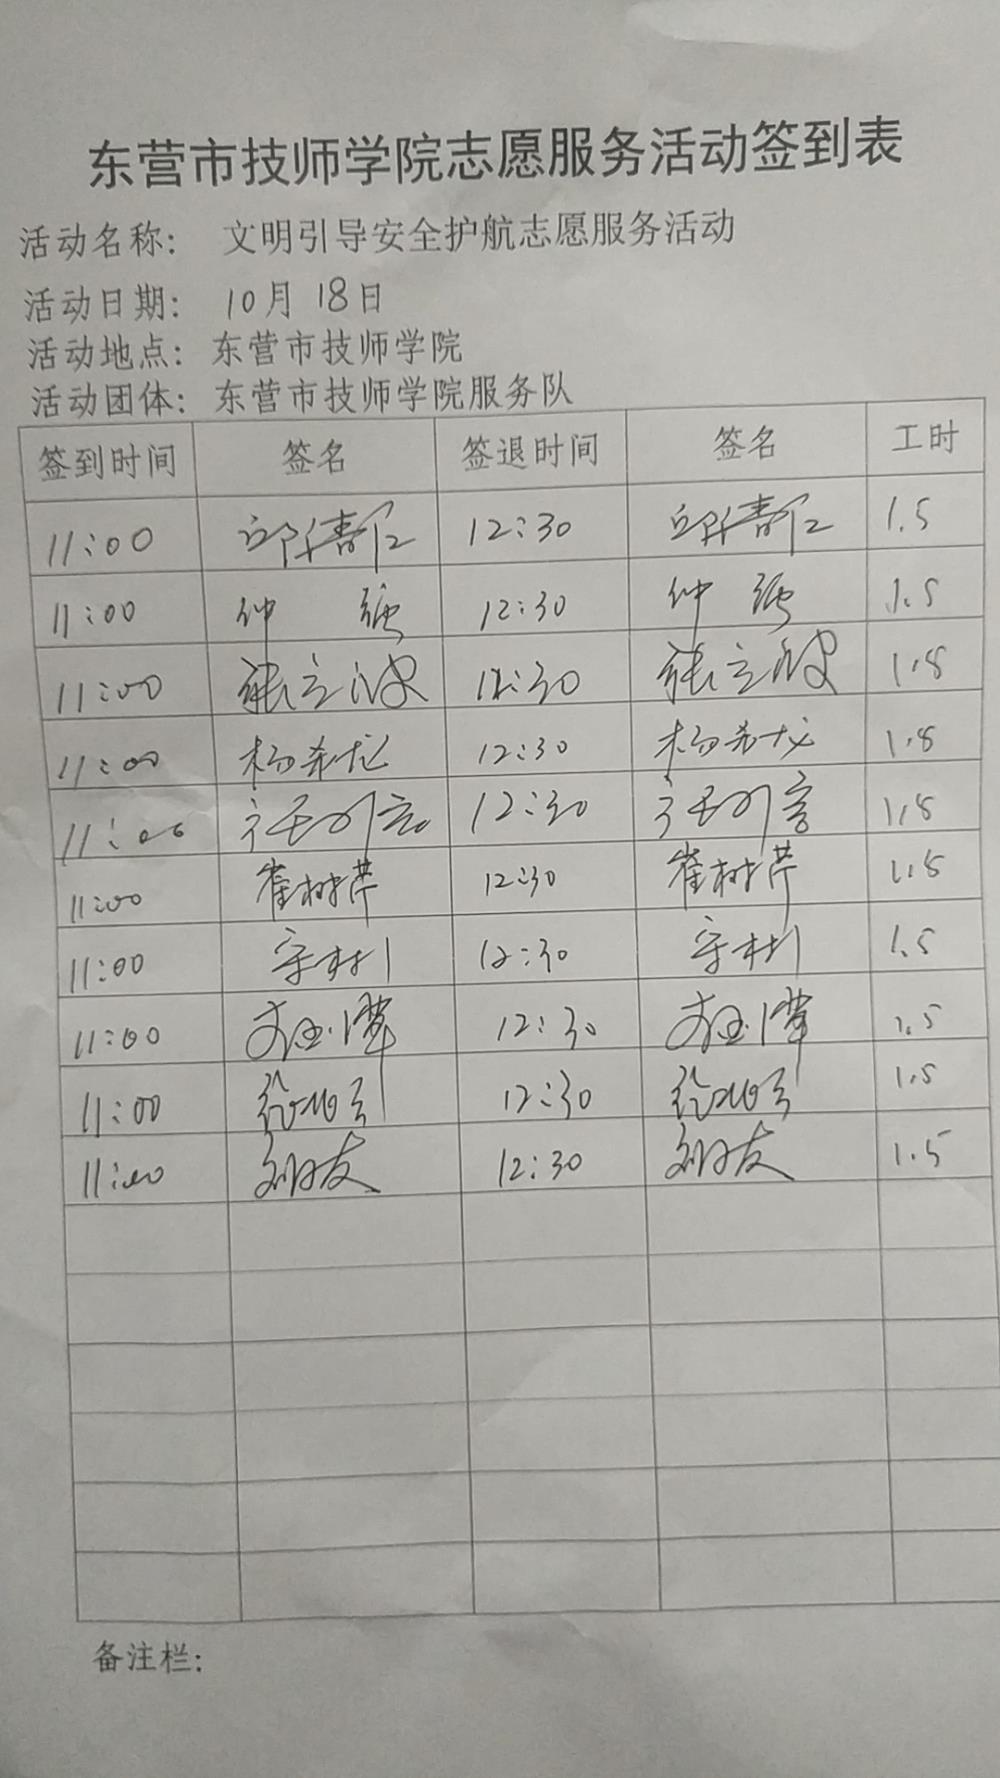 东营市技师学院志愿服务活动签到表
活动名称： 文明引导安全护航志愿服务活动
活动日期： 10月 18日
活动地点： 东营市技师学院
活动团体： 东营市技师学院服务队
签到时间 签名 签退时间 签名 工时
11:00 12:30 1.5
11:00 仲强 12:30 仲强 1.5
11:00 张立波 12:30 张立波 1.5
11:00 杨希龙 12:30 杨希龙 1.5
11:00 12:30 1.5
11:00 崔树芹 12:30 崔树芹 1.5
11:00 12:30 1.5
11:00 12:30 1.5
11:00 12:30 1.5
11:00 12:30 1.5
备注栏：